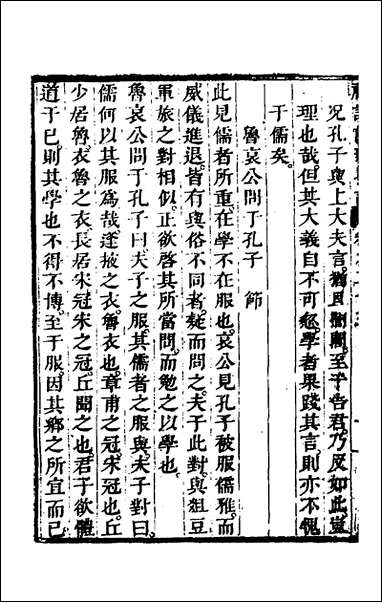 況孔子與上大夫言猶且誾誾至乎告君乃反如此豈
理也哉但其大義自不可忽學者果踐其言則亦不愧
于儒矣
魯哀公問于孔子 節
此見儒者所重在學不在服也哀公見孔子被服儒雅而
威儀進退皆有與俗不同者疑而問之夫子此對與俎豆
軍旅之對相似正欲啓其所當問而勉之以學也
魯哀公問于孔子曰夫子之服其儒者之服與夫子對曰
儒何以其服爲哉逢掖之衣魯衣也章甫之冠宋冠也丘
少居魯衣魯之衣長居宋冠宋之冠丘聞之也君子欲體
道于已則其學也不得不博至于服因其鄉之所宜而已